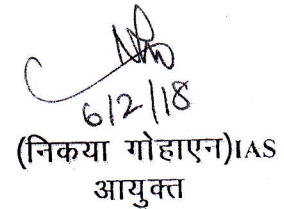 6/2/18
(निकया गोहाएन)IAS
आयुक्त